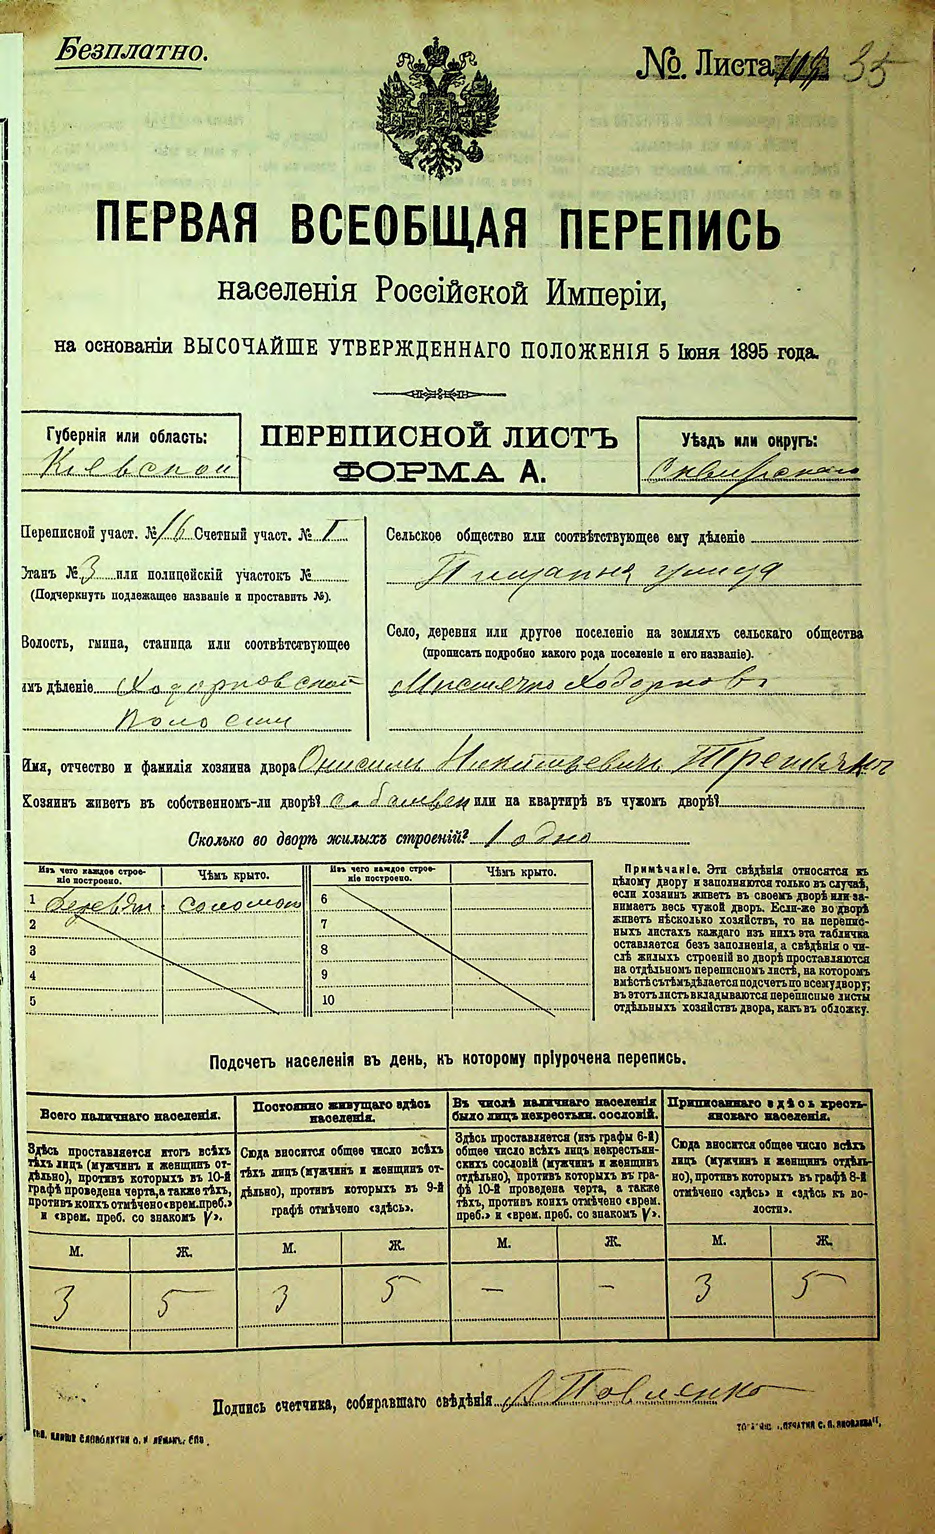 Безплатно.
№. Листа 35
ПЕРВАЯ ВСЕОБЩАЯ ПЕРЕПИСЬ
населенія Россійской Имперіи,
на основаніи ВЫСОЧАЙШЕ УТВЕРЖДЕННАГО ПОЛОЖЕНІЯ 5 Іюня 1895 года.
Губернія или область:
Кіевской
ПЕРЕПИСНОЙ ЛИСТЪ
ФОРМА А.
Уѣздъ или округъ:
Сквирскаго
Переписной участ. № 16 Счетный участ. № I
Станъ № 3 или полицейскій участокъ №
(Подчеркнуть подлежащее названіе и проставить №).
Волость, гмина, станица или соотвѣтствующее
имъ дѣленіе Ходорковской
Волости
Сельское общество или соотвѣтствующее ему дѣленіе
улица
Село, деревня или другое поселеніе на земляхъ сельскаго общества
(прописать подробно какого рода поселеніе и его названіе).
Мѣстечко Ходорковъ
Имя, отчество и фамилія хозяина двора Онисимъ Никитьевичъ
Хозяинъ живетъ въ собственномъ-ли дворѣ? или на квартирѣ въ чужомъ дворѣ?
Сколько во дворѣ жилыхъ строеній? 1 одно
Изъ чего каждое строеніе построено. Чѣмъ крыто. Изъ чего каждое строеніе построено. Чѣмъ крыто.
1 соломой 6
2 7
3 8
4 9
5 10
Примѣчаніе. Эти свѣдѣнія относятся къ
цѣлому двору и заполняются только въ случаѣ,
если хозяинъ живетъ въ своемъ дворѣ или занимаетъ
весь чужой дворъ. Если-же во дворѣ
живетъ нѣсколько хозяйствъ, то на переписныхъ
листахъ каждаго изъ нихъ эта табличка
оставляется безъ заполненія, а свѣдѣнія о числѣ
жилыхъ строеній во дворѣ проставляются
на отдѣльномъ переписномъ листѣ, на которомъ
вмѣстѣ съ тѣмъ дѣлается подсчетъ по всему двору;
въ этотъ листъ вкладываются переписные листы
отдѣльныхъ хозяйствъ двора, какъ въ обложку.
Подсчетъ населенія въ день, къ которому пріурочена перепись.
Всего наличнаго населенія.
Здѣсь проставляется итогъ всѣхъ
тѣхъ лицъ (мужчинъ и женщинъ отдѣльно),
противъ которыхъ въ 10-й
графѣ проведена черта, а также тѣхъ,
противъ коихъ отмѣчено «врем. преб.»
и «врем. преб. со знакомъ V».
Постоянно живущаго здѣсь
населенія.
Сюда вносится общее число всѣхъ
тѣхъ лицъ (мужчинъ и женщинъ отдѣльно),
противъ которыхъ въ 9-й
графѣ отмѣчено «здѣсь».
Въ числѣ наличнаго населенія
было лицъ некрестьян. сословій.
Здѣсь проставляется (изъ графы 6-й)
общее число всѣхъ лицъ некрестьянскихъ
сословій (мужчинъ и женщинъ
отдѣльно), противъ которыхъ въ графѣ
10-й проведена черта, а также
тѣхъ, противъ коихъ отмѣчено «врем.
преб.» и «врем. преб. со знакомъ V».
Приписаннаго здѣсь крестьянскаго
населенія.
Сюда вносится общее число всѣхъ
лицъ (мужчинъ и женщинъ отдѣльно),
противъ которыхъ въ графѣ 8-й
отмѣчено «здѣсь» и «здѣсь къ волости».
М. Ж. М. Ж. М. Ж. М. Ж.
3 5 3 5 — — 3 5
Подпись счетчика, собиравшаго свѣдѣнія Павленко